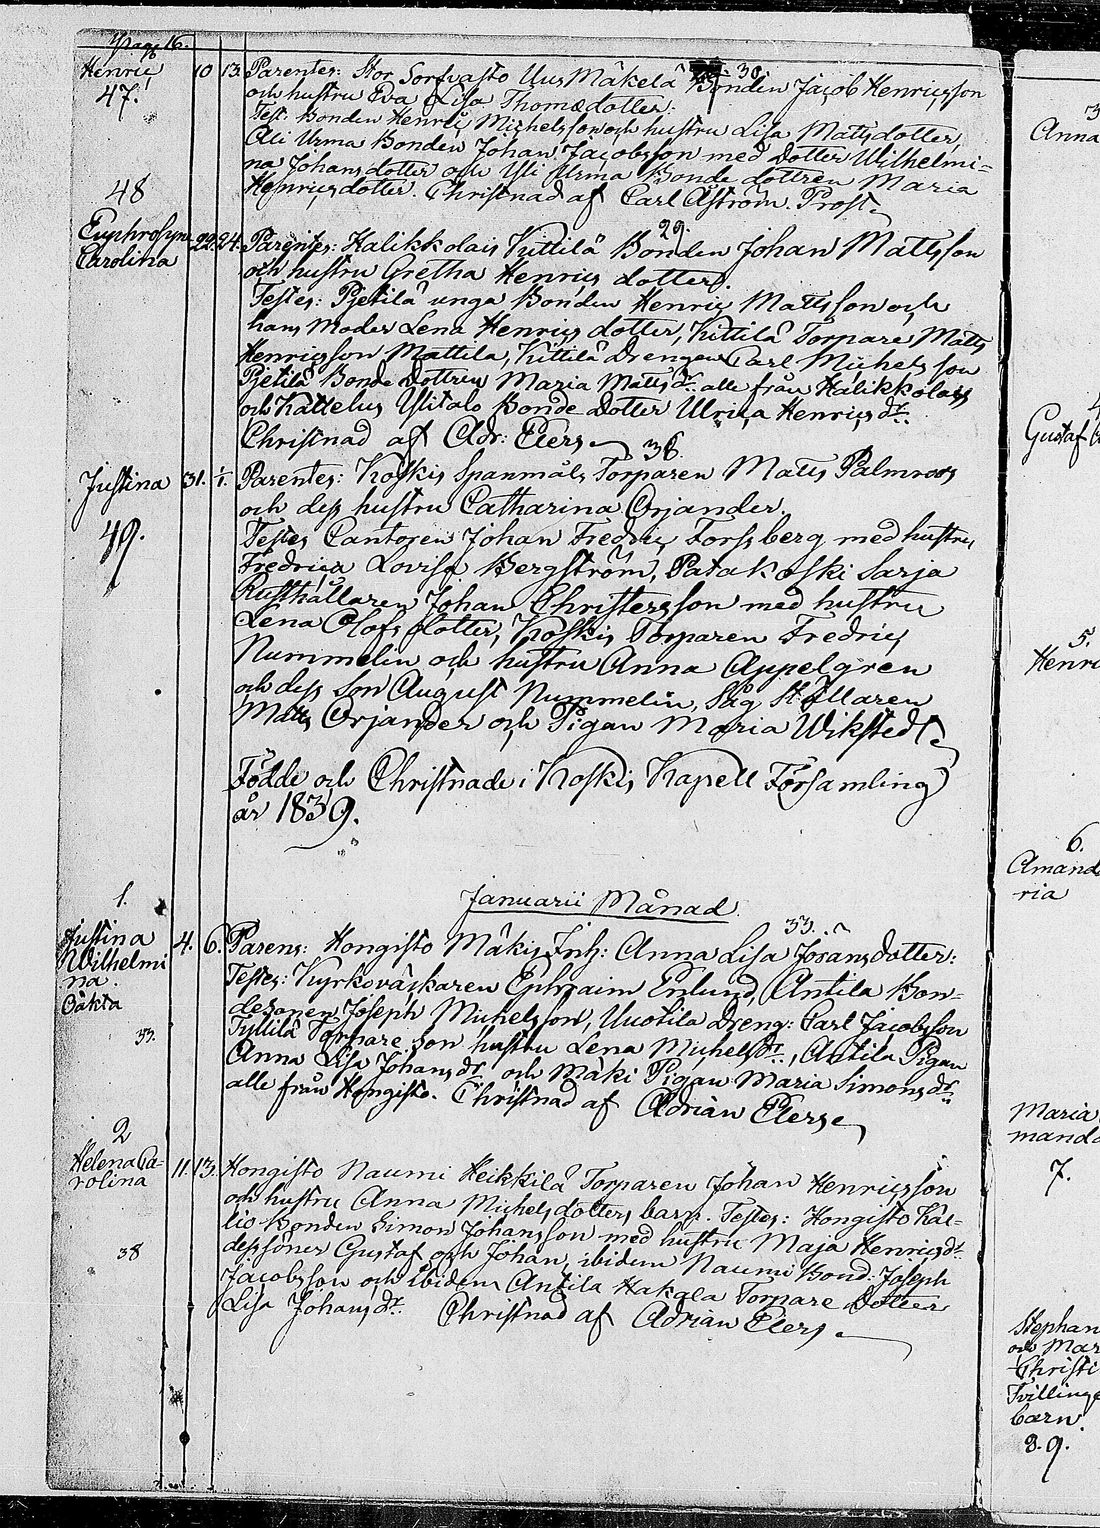 Pag 16.
Henric 10 13. Parentes: Stor Sorfvasto Uus Mäkelä Bonden Jacob Henricsson 30.
47. och hustru Eva Lisa Thomædotter.
Test: Bonden Henric Michelsson och hustru Lisa Mattsdotter,
Ali Urma Bonden Johan Jacobsson med Dotter Wilhelmi=
na Johansdotter och Yli Urma Bonde dottren Maria
48 Henricsdotter. Christnad af Carl Åström. Prost
29.
Euphrosyn 22. 24. Parentes: Halikkolais Kittilä Bonden Johan Mattsson
Carolina och hustru Gretha Henrics dotter.
Testes: Pjetilä unga Bonden Henric Mattsson och
hans Moder Lena Henrics dotter, Kittilä Torpare Matts
Henricsson Mattila, Kittilä Drengen Carl Michelsson
Pjetilä Bonde Dottren Maria Matts dr. alle från Halikkolais
och Kattelus Ylitalo Bonde Dotter Ulrica Henrics dr.
Christnad af Adr: Elers
36.
Justina 31. 1/1. Parentes: Koskis Spanmåls Torparen Matts Palmroos
och dess hustru Catharina Orjander.
49. Testes Cantoren Johan Fredric Forssberg med hustru
Fredrica Lovisa Bergström, Patakoski Sarja
Rusthållaren Johan Christersson med hustru
Lena Olofs dotter, Koskis Torparen Fredric
Nummelin och hustru Anna Appelgren
och dess Son August Nummelin, Såg Ställaren
Matts Orjander och Pigan Maria Wikstedt
Födde och Christnade i Koskis Kapell Församling
år 1839.
Januarii Månad
1.
33.
Justina 4. 6. Parens: Hongisto Mäkis Inh: Anna Lisa Josansdotter:
Wilhelmi
na.
Oäkta
33.
Testes: Kyrkovärkaren Ephraim Enlund, Antila Bon=
desonen Joseph Michelsson, Uuotila Dreng: Carl Jacobsson
Tyttilä Torpare son hustru Lena Michels dr., Antila Pigan
Anna Lisa Johans dr. och Mäki Pigan Maria Simons dr.
alle från Hongisto. Christnad af Adrian Elers
2
Helena Ca= 11. 13. Hongisto Naumi Heikkilä Torparen Johan Henricsson
rolina och hustru Anna Michelsdotters barn. Testes: Hongisto Kal=
lio Bonden Simon Johansson med hustru Maja Henrics dr.
38 dess söner Gustaf och Johan, ibidem Naumi Bond: Joseph
Jacobsson och ibidem Antila Hakala Torpare Dotter
Lisa Johans dr. Christnad af Adrian Elers
Anna
Gustaf
5.
Henri
6.
Amand
ria
Maria
manda
7.
Stephan
och Mar
Christi
Tvillinge
barn.
8. 9.